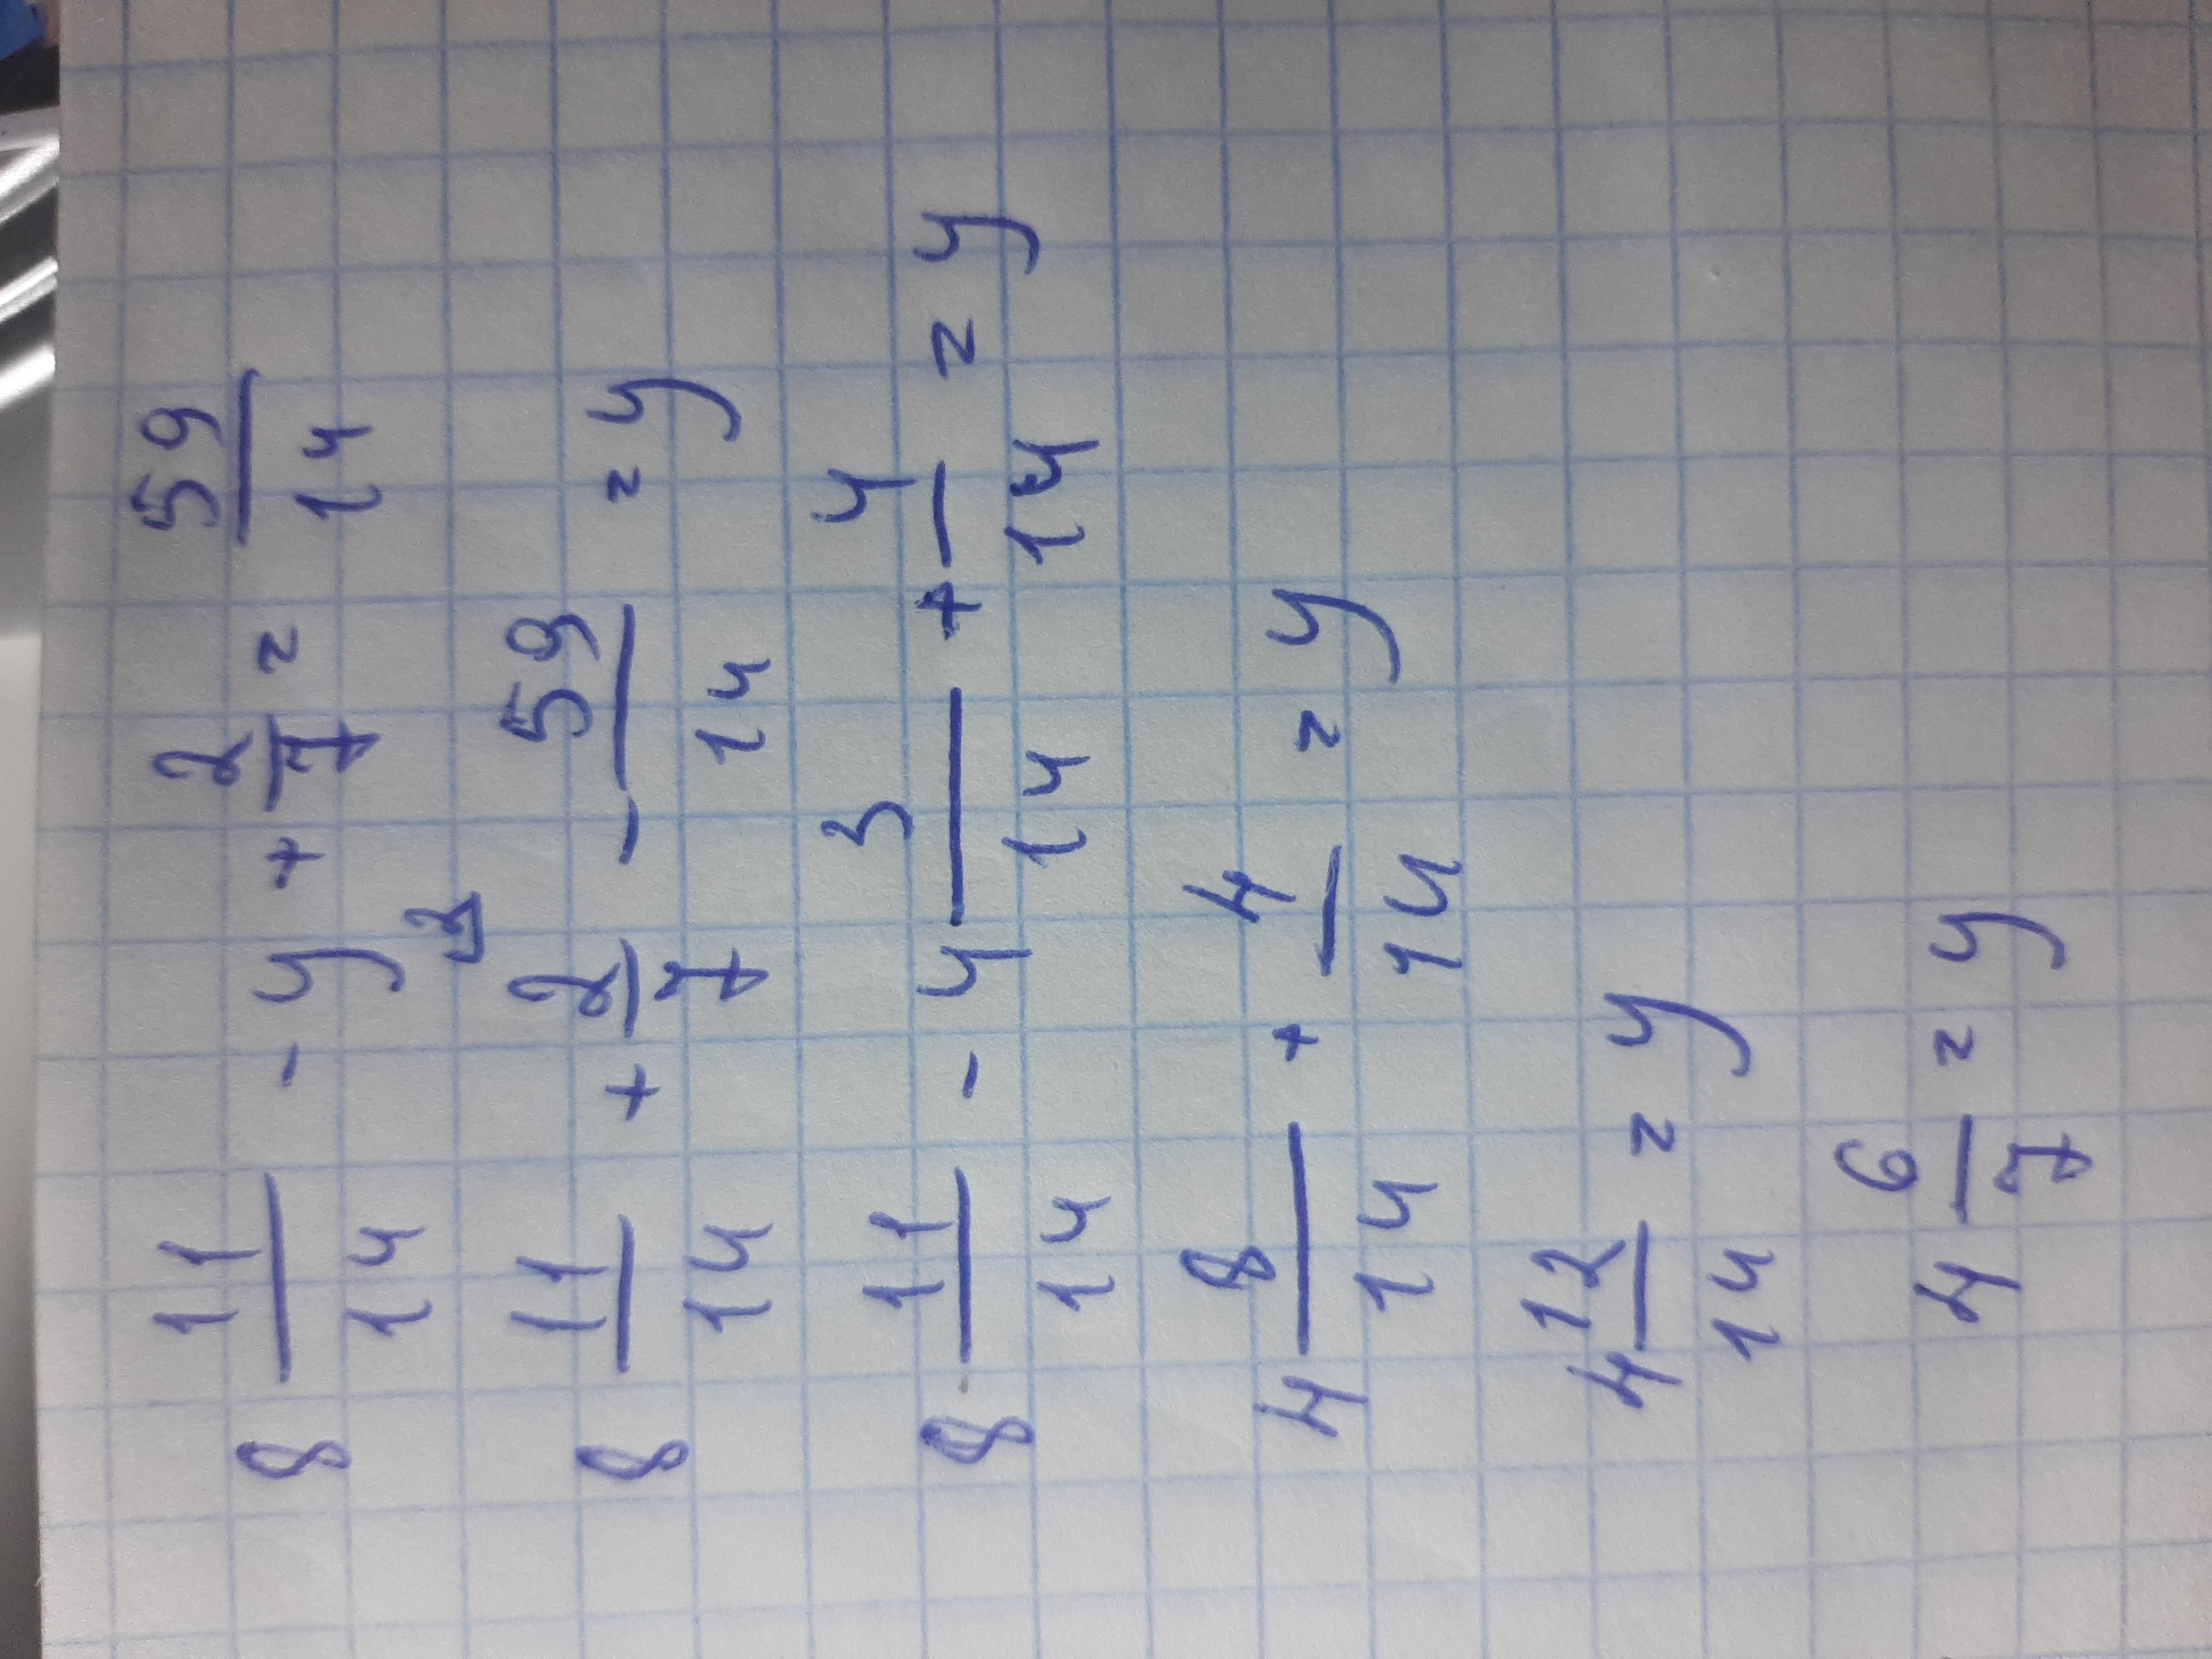 8 11/14 - y + 2/7 = 59/14
8 11/14 + 2/7 - 59/14 = y
8 11/14 - 4 3/14 + 4/14 = y
4 8/14 + 4/14 = y
4 12/14 = y
4 6/7 = y